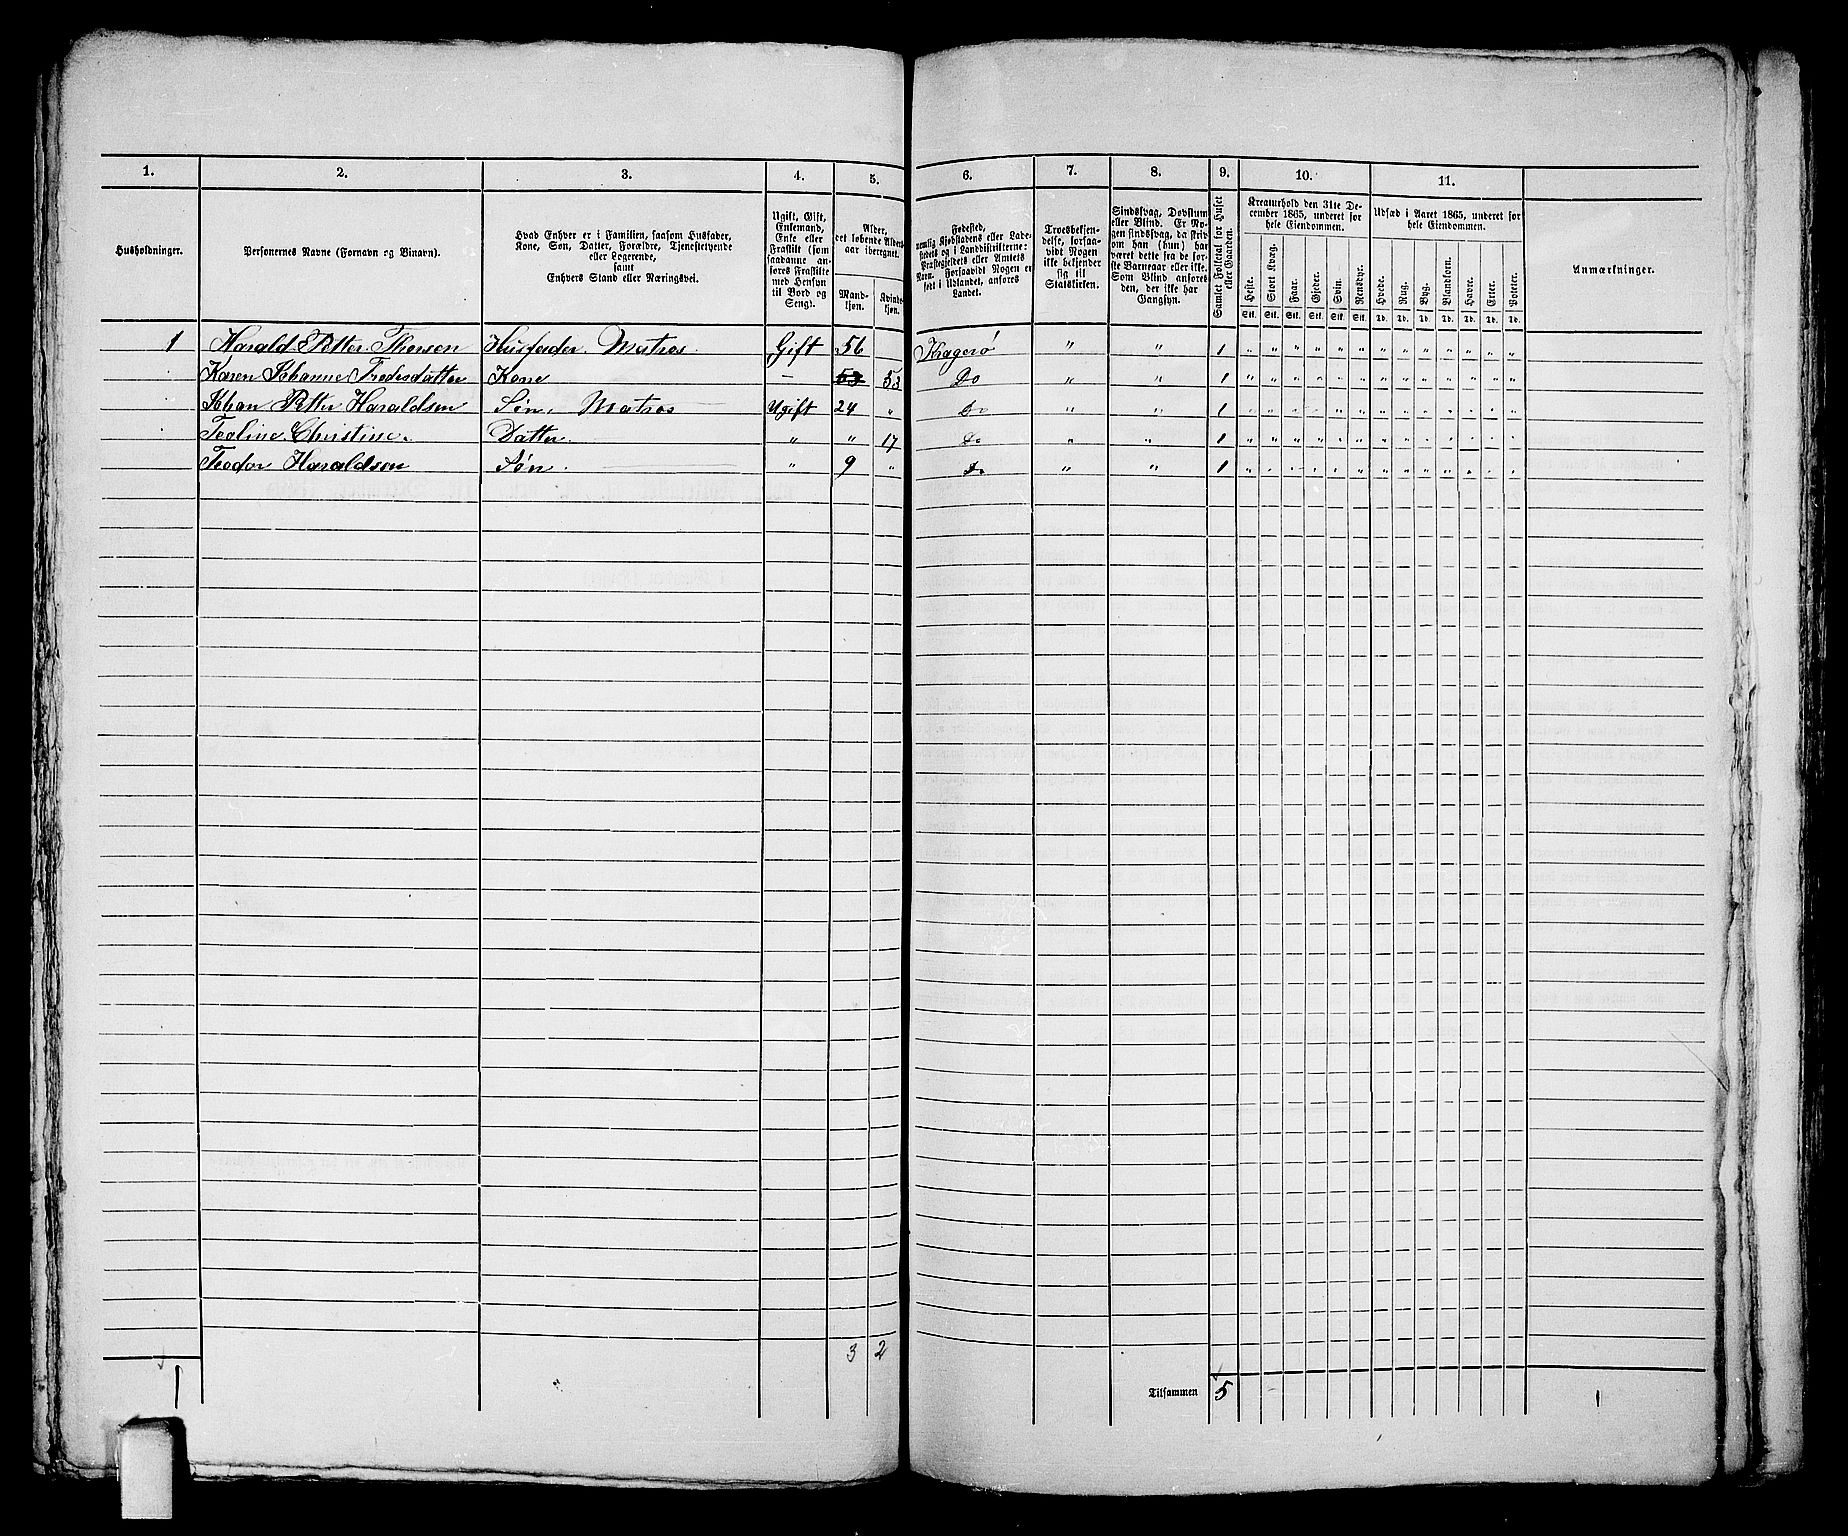 1. 2. 3. 4. 5. 6. 7. 8. 9. 10. 11.
Husholdninger.
Personernes Navne (Fornavn og Binavn).
Hvad Enhver er i Familien, saasom Husfader,
Kone, Søn, Datter, Forældre, Tjenestetyende
eller Logerende,
samt
Enhvers Stand eller Næringsvei.
Ugift, Gift,
Enkemand,
Enke eller
Fraskilt (som
saadanne an-
føres Fraskilte
med Hensyn
til Bord og
Seng).
Alder,
det løbende Alders-
aar iberegnet.
Mand-
kjøn.
Kvinde-
kjøn.
Fødested,
nemlig Kjøbstadens eller Lade-
stedets og i Landdistrikterne:
Præstegjeldets eller Amtets
Navn. Forsaavidt Nogen er
født i Udlandet, anføres
Landet.
Troesbekjen-
delse, forsaa-
vidt Nogen
ikke bekjender
sig til
Statskirken.
Sindssvag, Døvstum
eller Blind. Er No-
gen sindssvag, da skriv
om han (hun) har
været dette fra de for-
ste Barneaar eller ikke.
Som Blind anføres
den, der ikke har
Gangsyn.
Samlet Folketal for Huset
eller Gaarden.
Kreaturhold den 31te De-
cember 1865, underet for
hele Eiendommen.
Heste. Stort Kvæg. Faar. Gjeder. Svin. Rensdyr.
Stk. Stk. Stk. Stk. Stk. Stk.
Udsæd i Aaret 1865, underet for
hele Eiendommen.
Hvede. Rug. Byg. Blandkorn. Havre. Erter. Poteter.
Td. Td. Td. Td. Td. Td. Td.
Anmærkninger.
1 Harald Petter Thorsen Husfader. Matros. Gift 56 Kragerø " " 1 " " " " " " " " " " " " "
Karen Johanne Fredesdatter Kone — 53 53 Do " " 1 " " " " " " " " " " " " "
Johan Petter Haraldsen Søn, Matros Ugift 24 " Do " " 1 " " " " " " " " " " " " "
Teoline Christine. Datter. " " 17 Do " " 1 " " " " " " " " " " " " "
Teodor Haraldsen Søn. " 9 " Do " " 1 " " " " " " " " " " " " "
3 2
1 Tilsammen 5 1